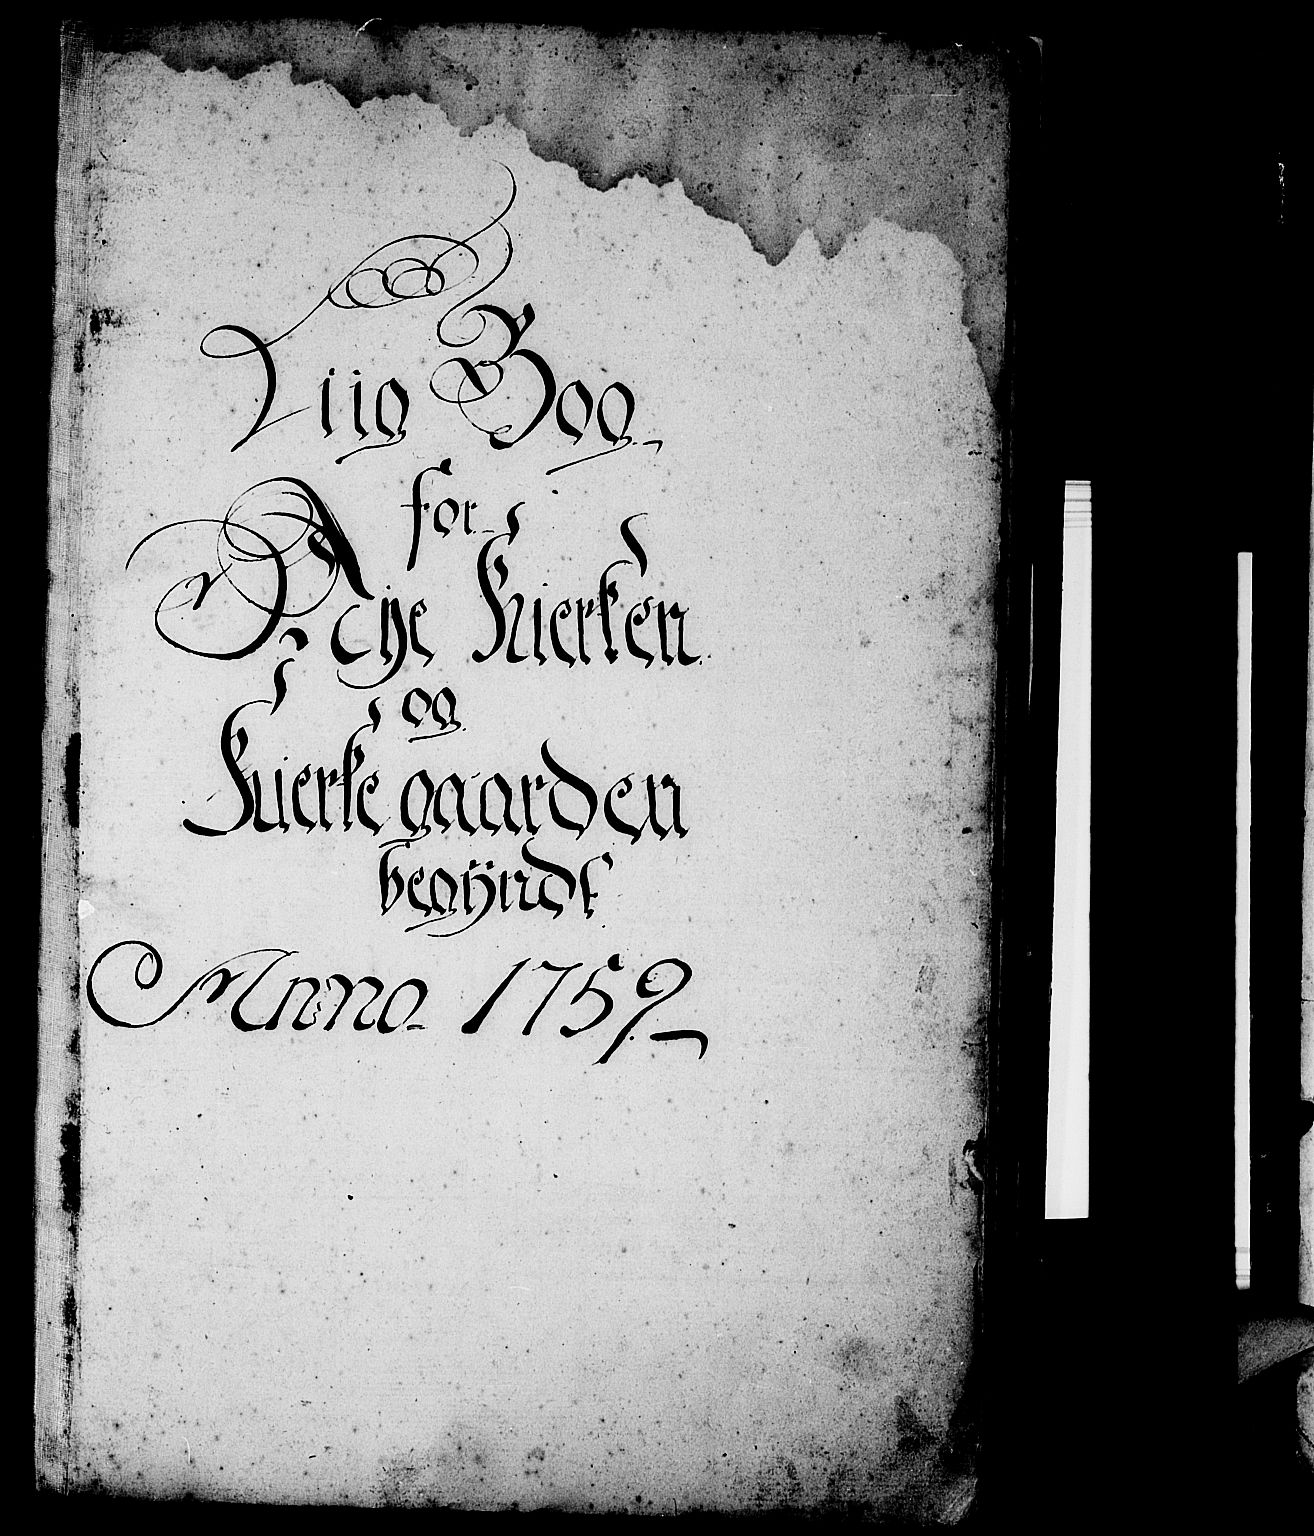 Liig Bog
for
Nÿe Kierken
og
Kierke gaarden
begÿndt
Anno 1759